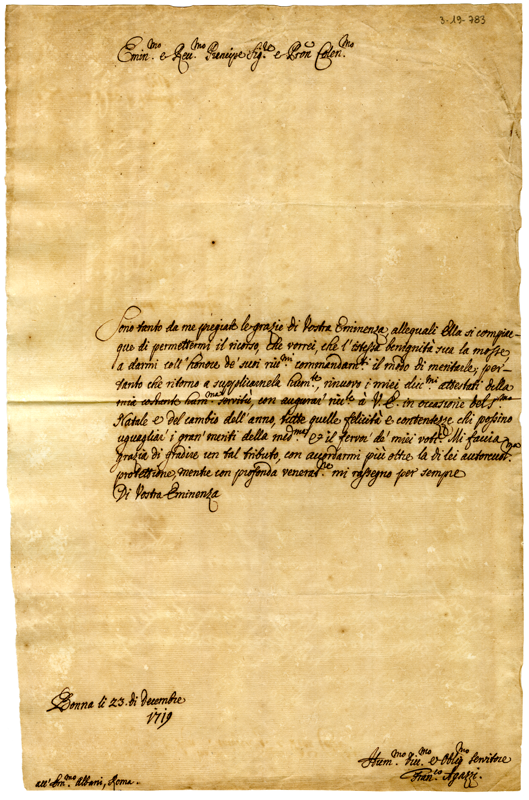 3-19-783
Emin.mo e Rev.mo Principe Sig.re e Pron Colen.mo
Sono tanto da me pregiate le grazie di Vostra Eminenza, allequali Ella si compiac-
que di permettermi il ricorso, che vorrei, che l'istessa benignità sua la mosse
a darmi coll'honore de' suoi riv.mi commandam.ti il modo di meritarle; per-
tanto che ritorno a supplicarnela hum.te, rinuovo i miei attestati della
mia hum.ma servitù, con augurar' à V. E. in occasione del S.mo
Natale e del cambio dell'anno, tutte quelle felicità e contentezze che possino
uguagliar' i gran' meriti della med.ma et il fervor de' miei voti. Mi faccia
grazia di gradire un tal tributo, con accordarmi più oltre la di lei autorevol.
protettione, mentre con profonda venerat.ne mi rassegno per sempre
Di Vostra Eminenza
Bonna li 23. di Decembre
1719
Hum.mo Div.mo et Oblig.mo Servitore
Fran.co Agazzi.
all' Em.mo Albani, Roma.